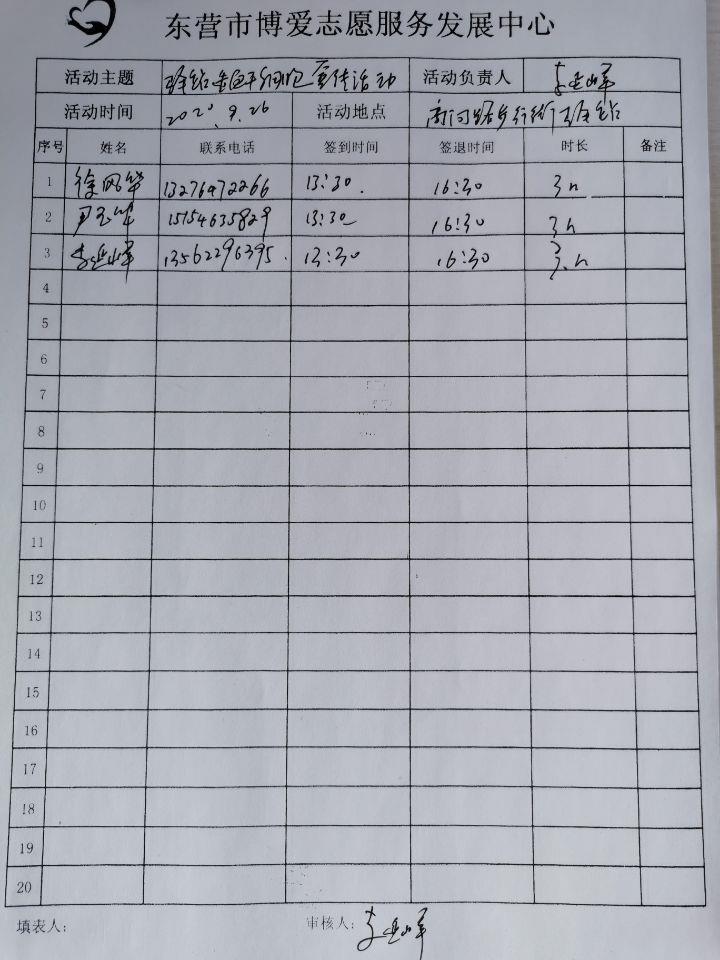 东营市博爱志愿服务发展中心
活动主题 造血干细胞宣传活动 活动负责人 李延峰
活动时间 2020.9.26 活动地点 步行街
序号 姓名 联系电话 签到时间 签退时间 时长 备注
1 徐风华 13276472266 13:30. 16:30 3h
2 15154635829 13:30 16:30 3h
3 李延峰 13562296395. 13:30 16:30 3.h
4
5
6
7
8
9
10
11
12
13
14
15
16
17
18
19
20
填表人: 审核人: 李延峰